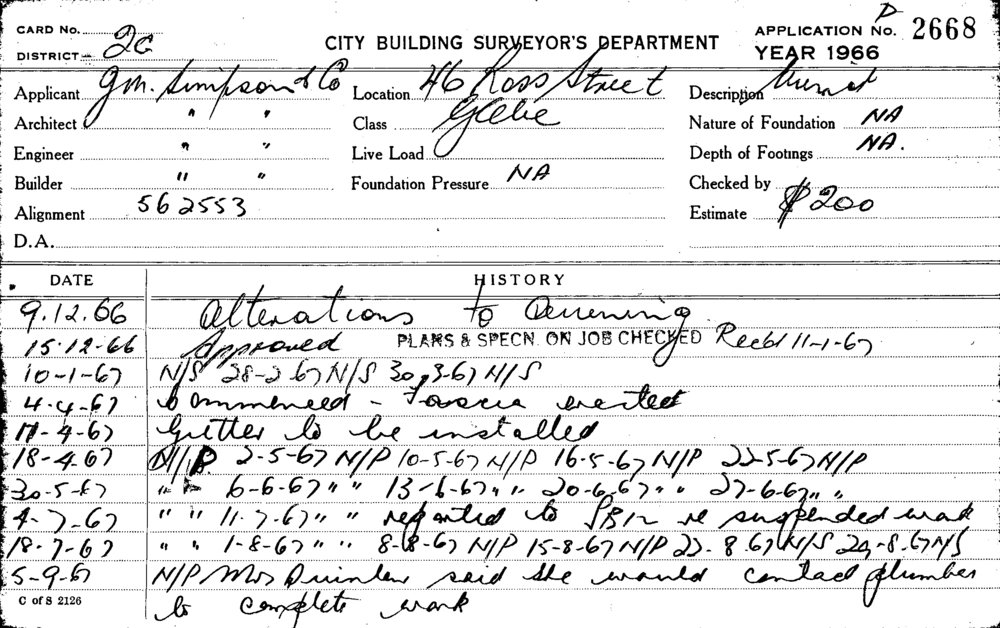 CARD No.
DISTRICT 2c
CITY BUILDING SURVEYOR'S DEPARTMENT
APPLICATION No. P 2668
YEAR 1966
Applicant J.M. Simpson & Co Location 46 Ross Street Description
Architect " " Class Glebe Nature of Foundation NA
Engineer " " Live Load Depth of Footings NA.
Builder " " Foundation Pressure NA Checked by
Alignment 562553 Estimate $200
D.A.
DATE HISTORY
9.12.66 Alterations to Awning
15.12.66 Approved PLANS & SPECN. ON JOB CHECKED Recd 11-1-67
10-1-67 N/S 28-2-67 N/S 30-3-67 N/S
4.4-67 Commenced - Fascia erected
11-4-67 Gutter to be installed
18-4.67 N/P 2-5-67 N/P 10-5-67 N/P 16-5-67 N/P 22-5-67 N/P
30-5-67 " " 6-6-67 " " 13-6-67 " " 20-6-67 " " 27-6-67 " "
4-7-67 " " 11-7-67 " " reported to re suspended work
18-7-67 " " 1-8-67 " " 8-8-67 N/P 15-8-67 N/P 22-8-67 N/S 29-8-67 N/S
5-9-67 N/P Mrs Quinlan said she would contact plumber
to complete work
C of S 2126